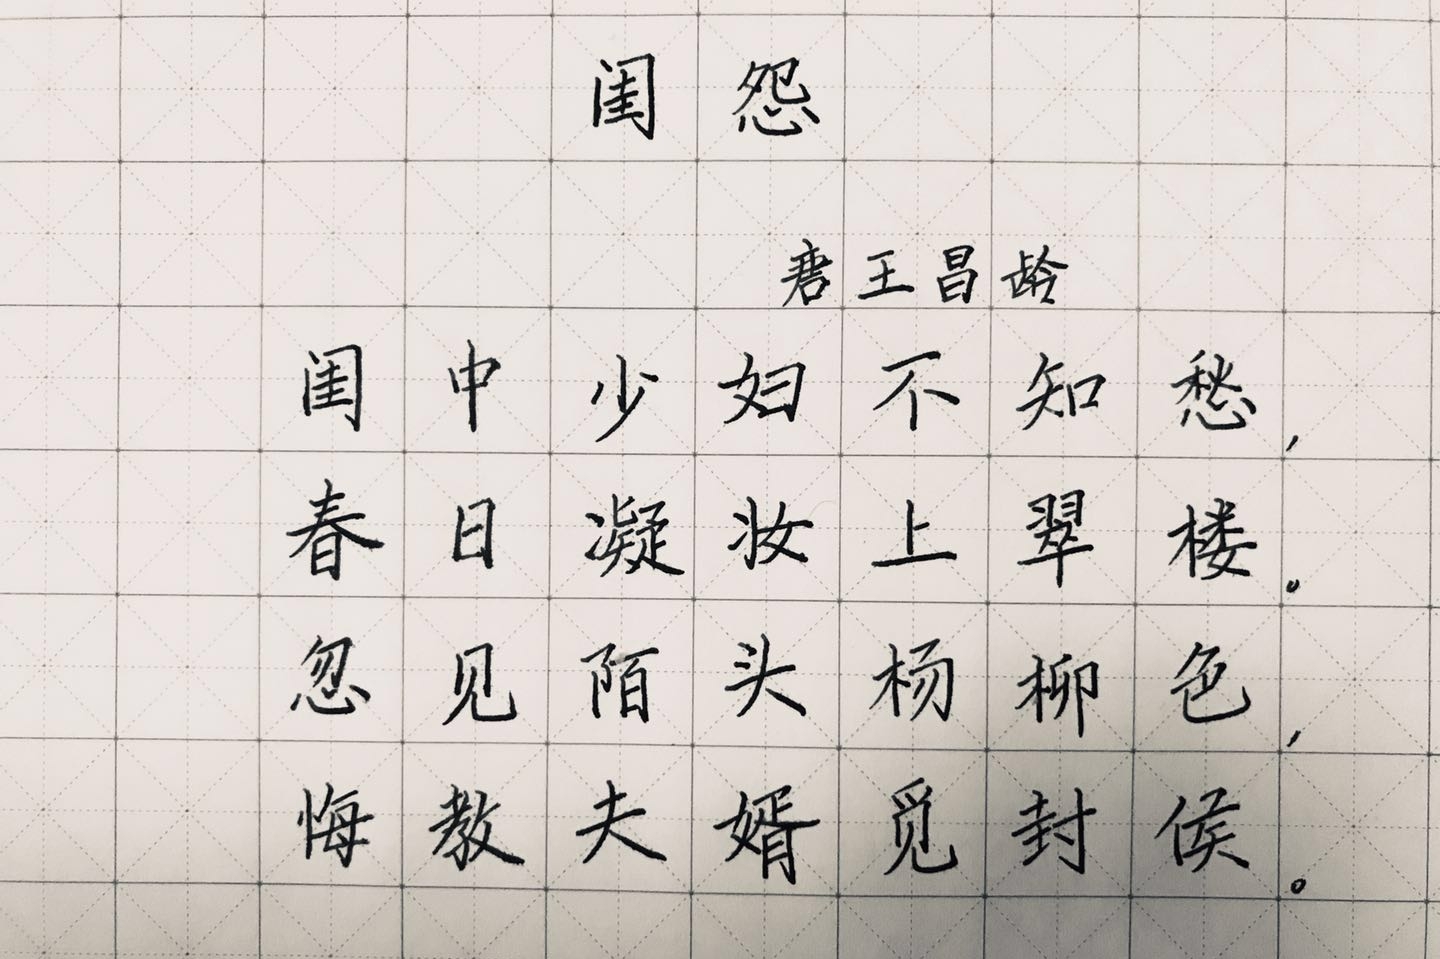 闺怨
唐王昌龄
闺中少妇不知愁,
春日凝妆上翠楼。
忽见陌头杨柳色,
悔教夫婿觅封侯。